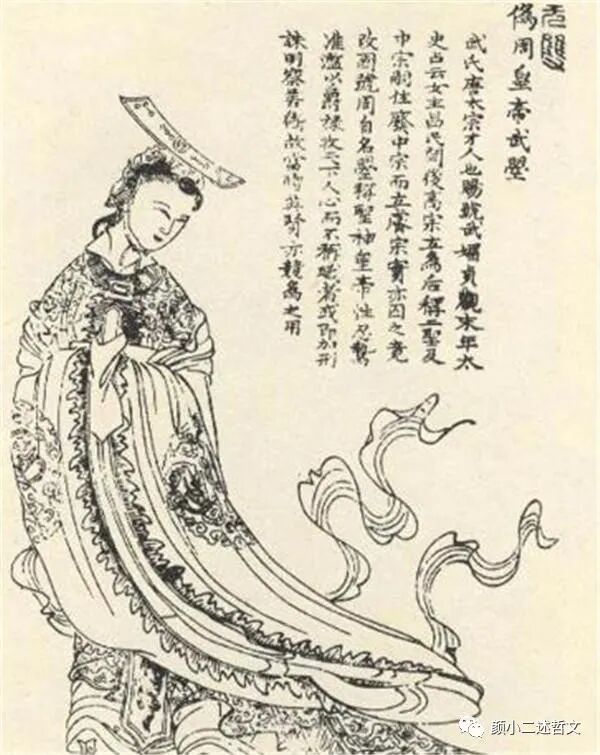 无雙
僞周皇帝武曌
武氏唐太宗才人也賜號武媚貞觀末年太
史占云女主昌民間後高宗立為后稱二聖及
中宗嗣位廢中宗而立睿宗實亦囚之竟
改國號周自名曌稱聖神皇帝性忍鷙
濫以爵祿收天下人心而不稱職者或即加刑
誅明察善故當時英賢亦競為之用
颜小二述哲文